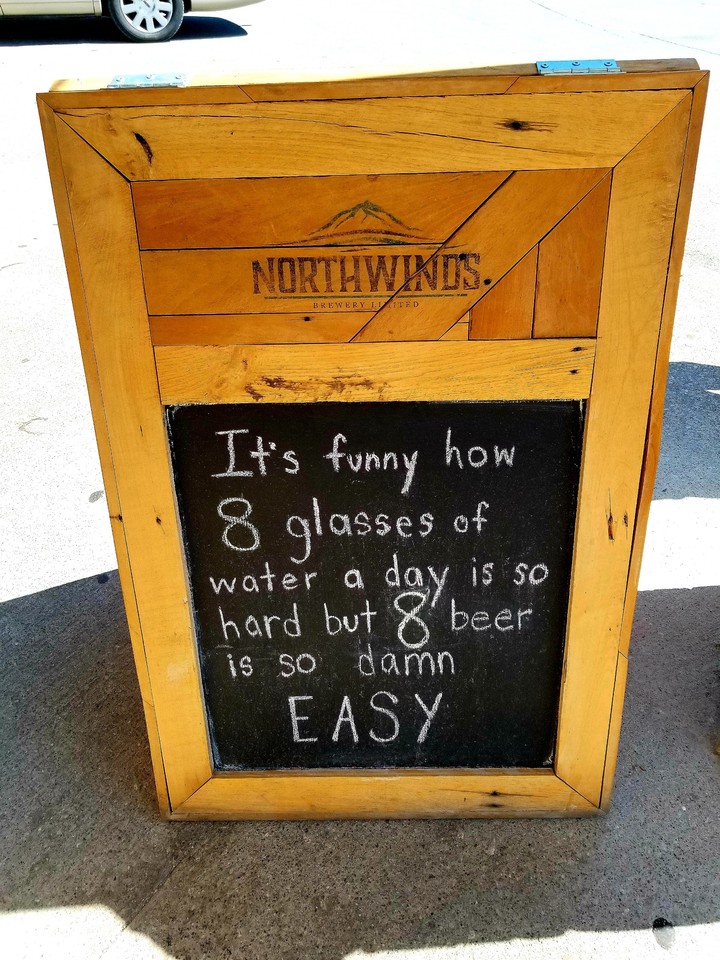 NORTHWINDS
BREWERY LIMITED
It's funny how
8 glasses of
water a day is so
hard but 8 beer
is so damn
EASY